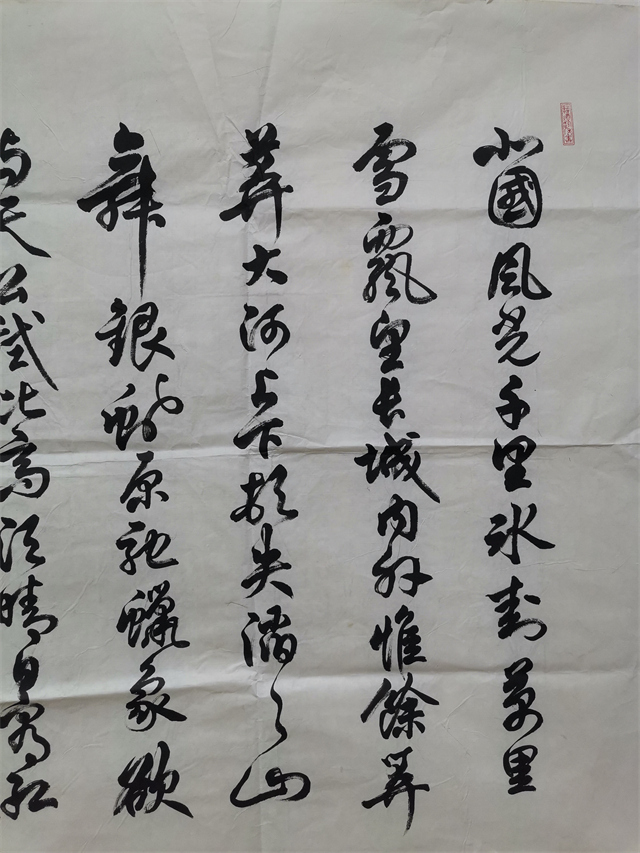 北國風光千里冰封萬里
雪飄望長城內外惟餘莽
莽大河上下頓失滔滔山
舞銀蛇原馳蠟象欲
與天公試比高須晴日看紅